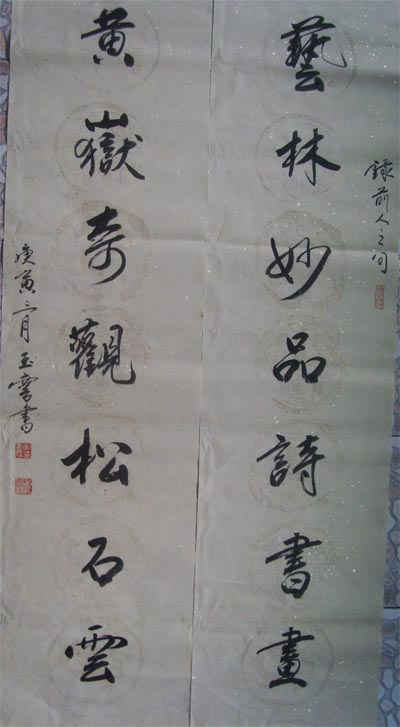 錄前人之句
藝林妙品詩書畫
黃嶽奇觀松石雲
庚寅二月玉雪書